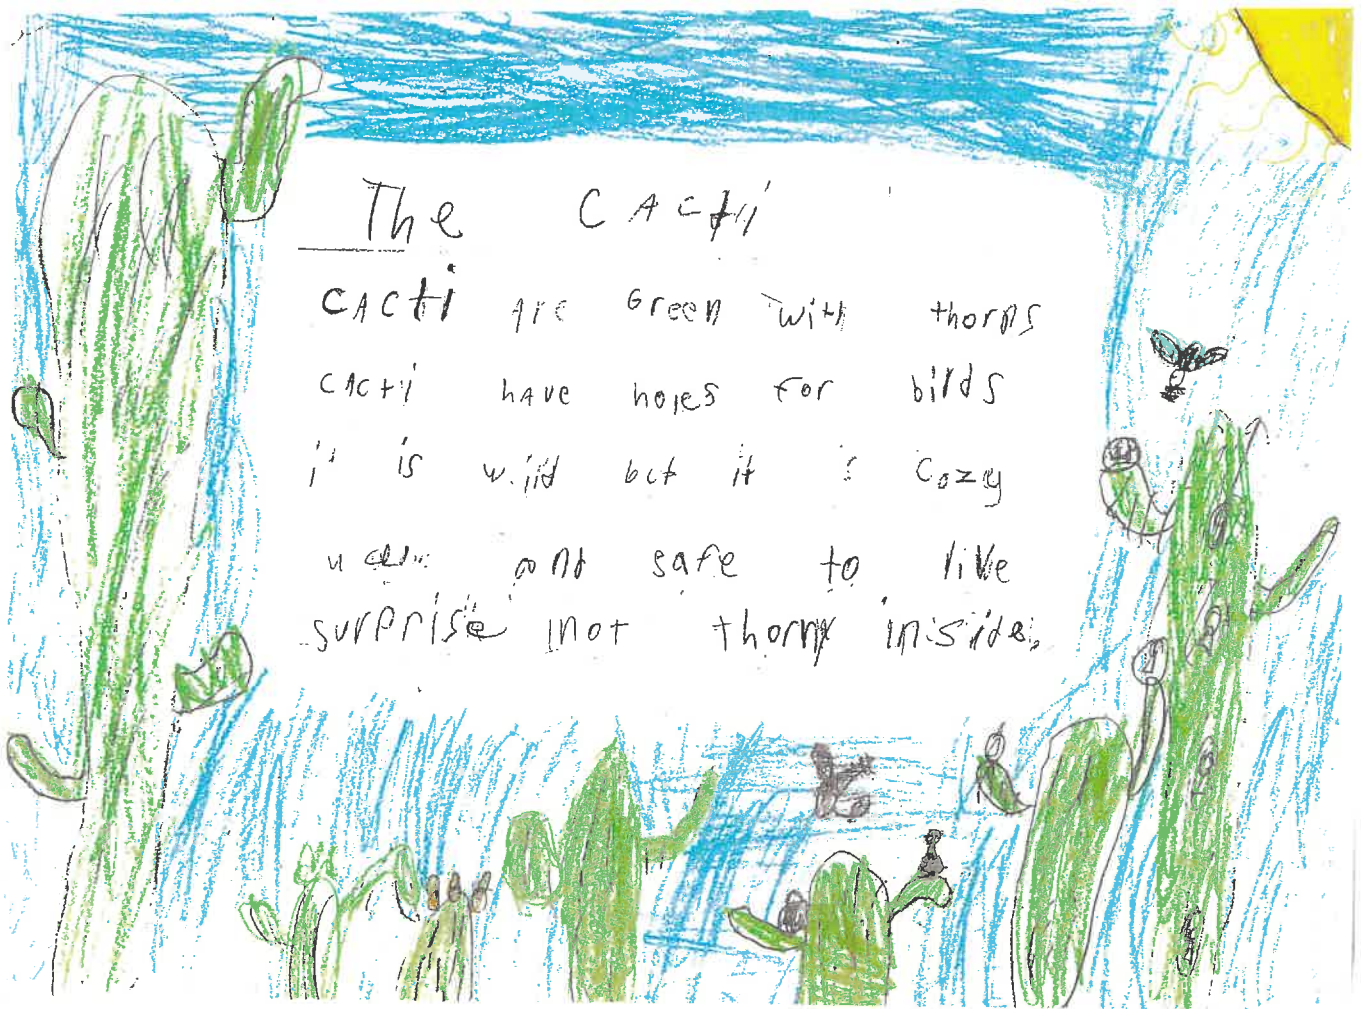 The CACti
CACti are Green with thorns
CACti hAve holes for birds
it is wild but it is Cozy
and safe to live
surprise not thorny inside.